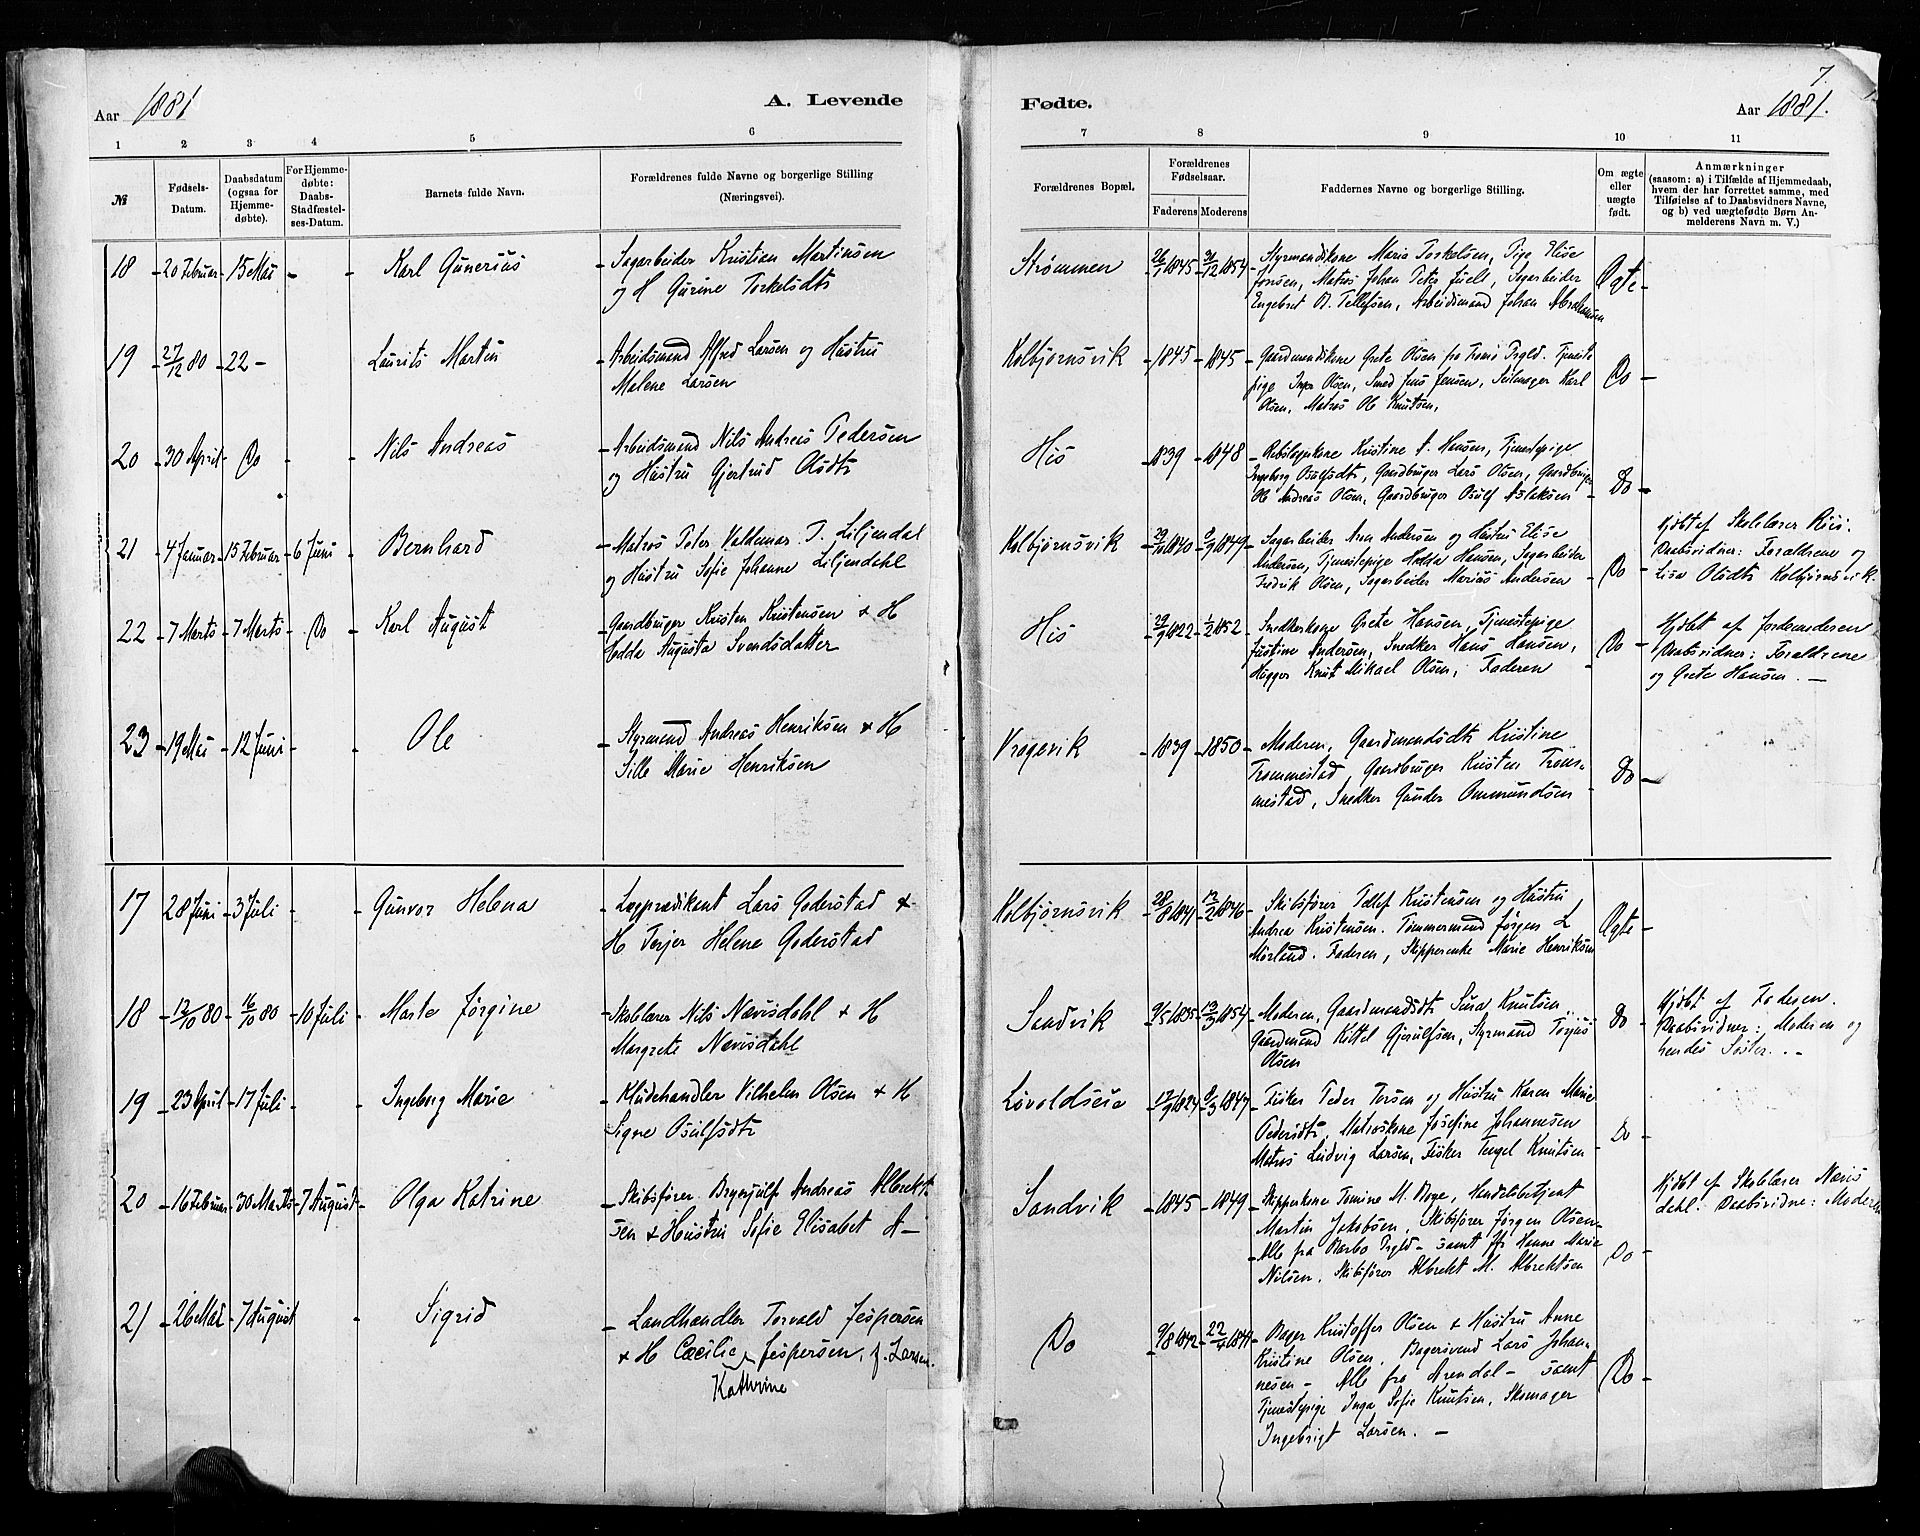 7.
Aar 1881 A. Levende Fødte. Aar 1881.
1 2 3 4 5 6 7 8 9 10 11
№ Fødsels-Datum. Daabsdatum (ogsaa for Hjemme-døbte). For Hjemme-døbte: Daabs-Stadfæstel-ses-Datum. Barnets fulde Navn. Forældrenes fulde Navne og borgerlige Stilling (Næringsvei). Forældrenes Bopæl. Forældrenes Fødselsaar. Faderens Moderens Faddernes Navne og borgerlige Stilling. Om ægte eller uægte født. Anmærkninger (saasom: a) i Tilfælde af Hjemmedaab, hvem der har forrettet samme, med Tilføielse af to Daabsvidners Navne, og b) ved uægtefødte Børn Anmelderens Navn m. V.)
18 - 20 Februar - 15 Mai - - Karl Gunerius - Sagarbeider Kristian Martinsen
og H Gurine Torkelsdtr
Strømmen 26/1 1845 - 30/12 1854 - Styrmandskone Maria Torkelsen, Pige Elise
Jonsen, Matros Johan Peter Juell, Sagarbeider
Engebret B. Tellefsen, Arbeidsmand Johan Abrahamsen
Ægte -
19 - 27/12 80 - 22 - - Laurits Martin - Arbeidsmand Alfred Larsen og Hustru
Malene Larsen
Kolbjørnsvik - 1845 - 1845 - Gaardmandskone Grete Olsen fra Tromø Prgld. Tjeneste
pige Inger Olsen, Smed Jens Jensen, Seilmager Karl
Olsen, Matros Ole Knutsen,
Do -
20 - 30 April - Do - - Nils Andreas - Arbeidsmand Nils Andreas Pedersen
og Hustru Gjertrud Olsdtr
His - 1839 - 1848 - Kristine A. Hansen, Tjenestepige
Ingeborg Osulfsdtr, Gaardbruger Lars Olsen, Gaardbruger
Ole Andreas Olsen, Gaardbruger Osulf Aslaksen -
Do -
21 - 4 Januar - 15 Februar - 6 Juni - Bernhard - Matros Peter Valdemar P. Liljendal
og Hustru Sofie Johanne Liljendahl
Kolbjørnsvik - 29/10 1840 - 2/9 1849 - Sagarbeider Aren Andersen og Hustru Elise
Andersen, Tjenestepige Hulda Hansen, Sagarbeider
Fredrik Olsen, Sagarbeider Marius Andersen -
Do -
Hjdbt af Skolelærer Riis.
Daabsvidner: Forældrene og
Lisa Olsdtr Kolbjørnsvik.
22 - 7 Marts - 7 Marts - Do - Karl August - Gaardbruger Kristen Kristensen & H
Edda Augusta Svendsdatter
His - 29/9 1822 - 1/2 1852 - Snedkerkone Grete Hansen, Tjenestepige
Justine Andersen, Snedker Hans Hansen,
Hugger Knut Mikael Olsen, Faderen -
Do -
Hjdbt af Jordemoderen
Daabsvidner: Forældrene
og Grete Hansen. -
23 - 19 Mai - 12 Juni - - Ole - Styrmand Andreas Henriksen & H
Sille Marie Henriksen
Vragevik - 1839 - 1850 - Moderen, Gaardmandsdtr Kristine
Trommestad, Gaardbruger Kristen Trom-
mestad, Snedker Gunder Ommundsen
Do -
17 - 28 Juni - 3 Juli - - Gunvor Helena - Lægprædikant Lars Gederstad &
H Terjer Helene Gederstad
Kolbjørnsvik - 28/8 1841 - 12/2 1846 - Skibsfører Tellef Kristensen og Hustru
Andrea Kristensen. Tømmermand Jørgen L
Mørland. Faderen, Skipperenke Marie Henriksen
Ægte -
18 - 12/10 80 - 16/10 80 - 10 Juli - Marte Jørgine - Skolelærer Nils Nævisdahl & H
Margrete Nævisdahl
Sandvik - 9/5 1835 - 13/3 1854 - Moderen, Gaardmandsdtr Sina Knutsen
Gaardmand Kittel Gjerulfsen, Styrmand Torjus
Olsen
Do -
Hjdbt af Faderen.
Daabsvidner: Moderen og
hendes Søster. -
19 - 23 April - 17 Juli - - Ingeborg Marie - Kludehandler Vilhelm Olsen & H
Signe Osulfsdtr
Løvoldseie - 17/9 1824 - 2/3 1847 - Fisker Peder Tersen og Hustru Karen Marie
Pedersdtr, Matroskone Josefine Johannsen
Matros Ludvig Larsen, Fisker Tengel Knutsen
Do -
20 - 16 Februar - 30 Marts - 7 August - Olga Katrine - Skibsfører Brynjulf Andreas Albrekt-
sen & Hustru Sofie Elisabet A-
Sandvik - 1845 - 1849 - Skipperkone Tomine M. Boye, Handelsbetjent
Martin Jakobsen, Skibsfører Jørgen Olsen -
- Alle fra Barbo Prgld - samt Hanne Marie
Nilsen, Skibsfører Albrekt M. Albrektsen
Do -
Hjdbt af Skolelærer Nævis
dahl. Daabsvidne: Moderen
21 - 26 Mai - 7 August - Sigrid - Landhandler Torvald Jespersen
& H Cæcilie Jespersen, f. Larsen.
Kathrine
Do - 9/8 1842 - 22/4 - Bager Kristoffer Olsen & Hustru Anne
Kristine Olsen, Bagersvend Lars Johan-
nesen - Alle fra Arendal - samt
Tjenestepige Inga Sofie Knutsen, Skomager
Ingebrigt Larsen. -
Do -